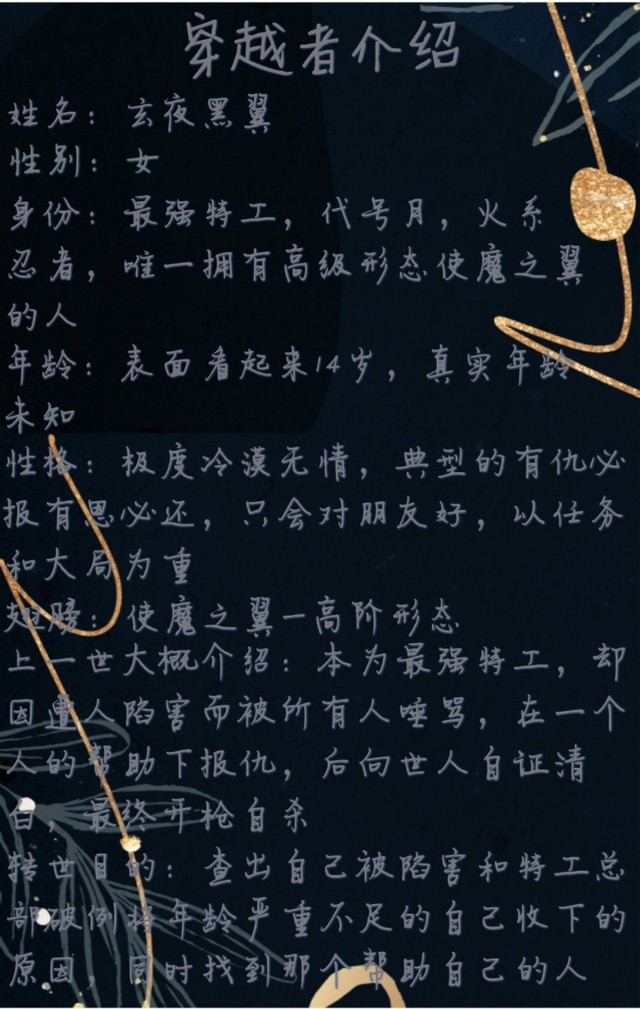 穿越者介绍
姓名：玄夜黑翼
性别：女
身份：最强特工，代号月，火系
忍者，唯一拥有高级形态使魔之翼
的人
年龄：表面看起来14岁，真实年龄
未知
性格：极度冷漠无情，典型的有仇必
报有恩必还，只会对朋友好，以任务
和大局为重
翅膀：使魔之翼-高阶形态
上一世大概介绍：本为最强特工，却
因遭人陷害而被所有人唾骂，在一个
人的帮助下报仇，后向世人自证清
白，最终开枪自杀
转世目的：查出自己被陷害和特工总
部破例将年龄严重不足的自己收下的
原因，同时找到那个帮助自己的人